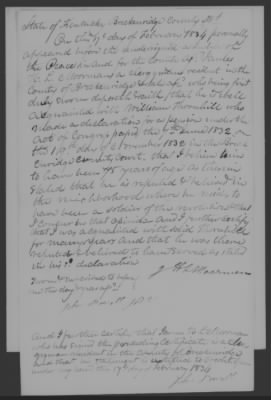 State of Kentucky Breckenridge County Sct
On the 19th day of February 1834 personally
appeared before the undersigned a Justice of
the Peace in and for the County of
a clergyman resident in the
County of Breckenridge who being first
duly sworn deposeth & saith that he is well
acquainted with William Thornhill who
made a declaration for a pension under the
act of Congress passed the 7th June 1832 on
the 19th day of November 1832 in the Breck
enridge County Court, that I believe him
to have been 75 years of age as therein
stated that he is reputed & believed in
the neighborhood where he resides to
have been a soldier of the revolution that
I concur in that opinion And I further certify
that I was acquainted with said Thornhill
for many years and that he was there
reputed & believed to have served as stated
in his declaration
Sworn & subscribed to before
me the day
And I further certify that
who has signed the preceding certificate is a cler
gyman resident in the County of Breckenridge
and that his statement is entitled to credit
under my hand this 19th day of February 1834